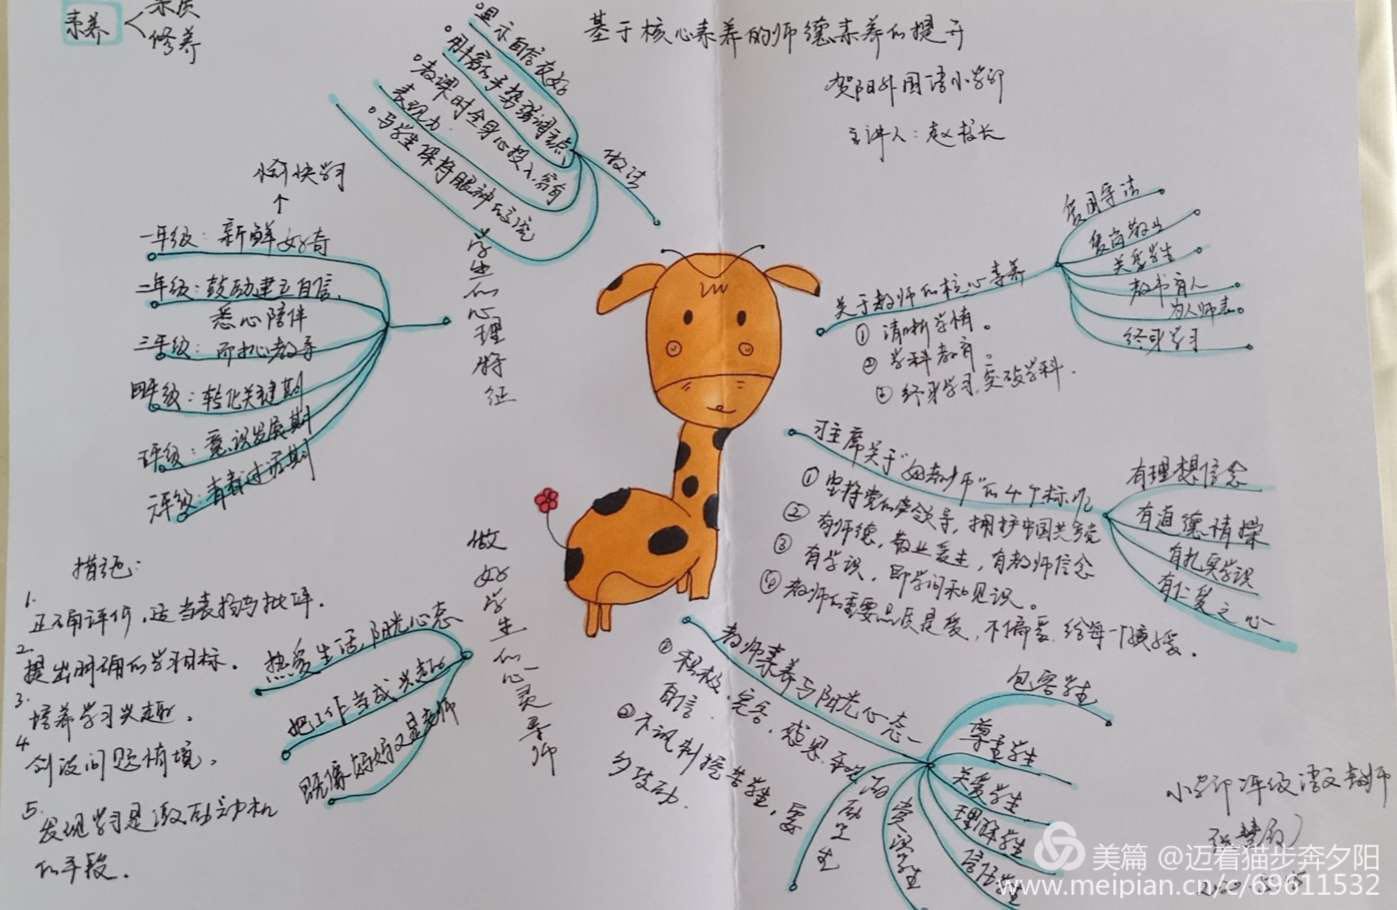 素养
素质
修养
基于核心素养的师德素养的提升
贺阳外国语小学部
主讲人：赵校长
做法
显示自信友好
用手势强调重点
教课时全身心投入，富有
表现力
与学生保持眼神的交流
学生的心理特征
愉快学习
一年级：新鲜好奇
二年级：鼓励建立自信、
悉心陪伴
三年级：耐心教导
四年级：转化关键期
五年级：意识发展期
六年级：青春过渡期
关于教师的核心素养
① 清晰学情。
② 学科教育。
③ 终身学习，突破学科.
爱国守法
爱岗敬业
关爱学生
教书育人
为人师表。
终身学习
习主席关于“好教师”的4个标准
① 坚持党的领导，拥护中国共产党
② 有师德，敬业爱生，有教师信念
③ 有学识，即学问和见识。
④ 教师的重要品质是爱，不偏爱，给每一个孩子爱。
有理想信念
有道德情操
有扎实学识
有仁爱之心
教师素养与阳光心态
① 积极、宽容、感恩、乐观
自信.
②不讽刺挖苦学生，要
多鼓励.
包容学生
尊重学生
关爱学生
理解学生
信任学生
赏识学生
激励学生
做好学生的心灵导师
热爱生活，阳光心态
把工作当成兴趣
既像妈妈又是老师
措施：
1.
正确评价，适当表扬与批评.
2.
提出明确的学习目标.
3.
培养学习兴趣.
4
创设问题情境.
5.
发现学习是激励动机
的手段.
小学部
年级语文教师
美篇 @迈着猫步奔夕阳
www.meipian.cn/c/69611532